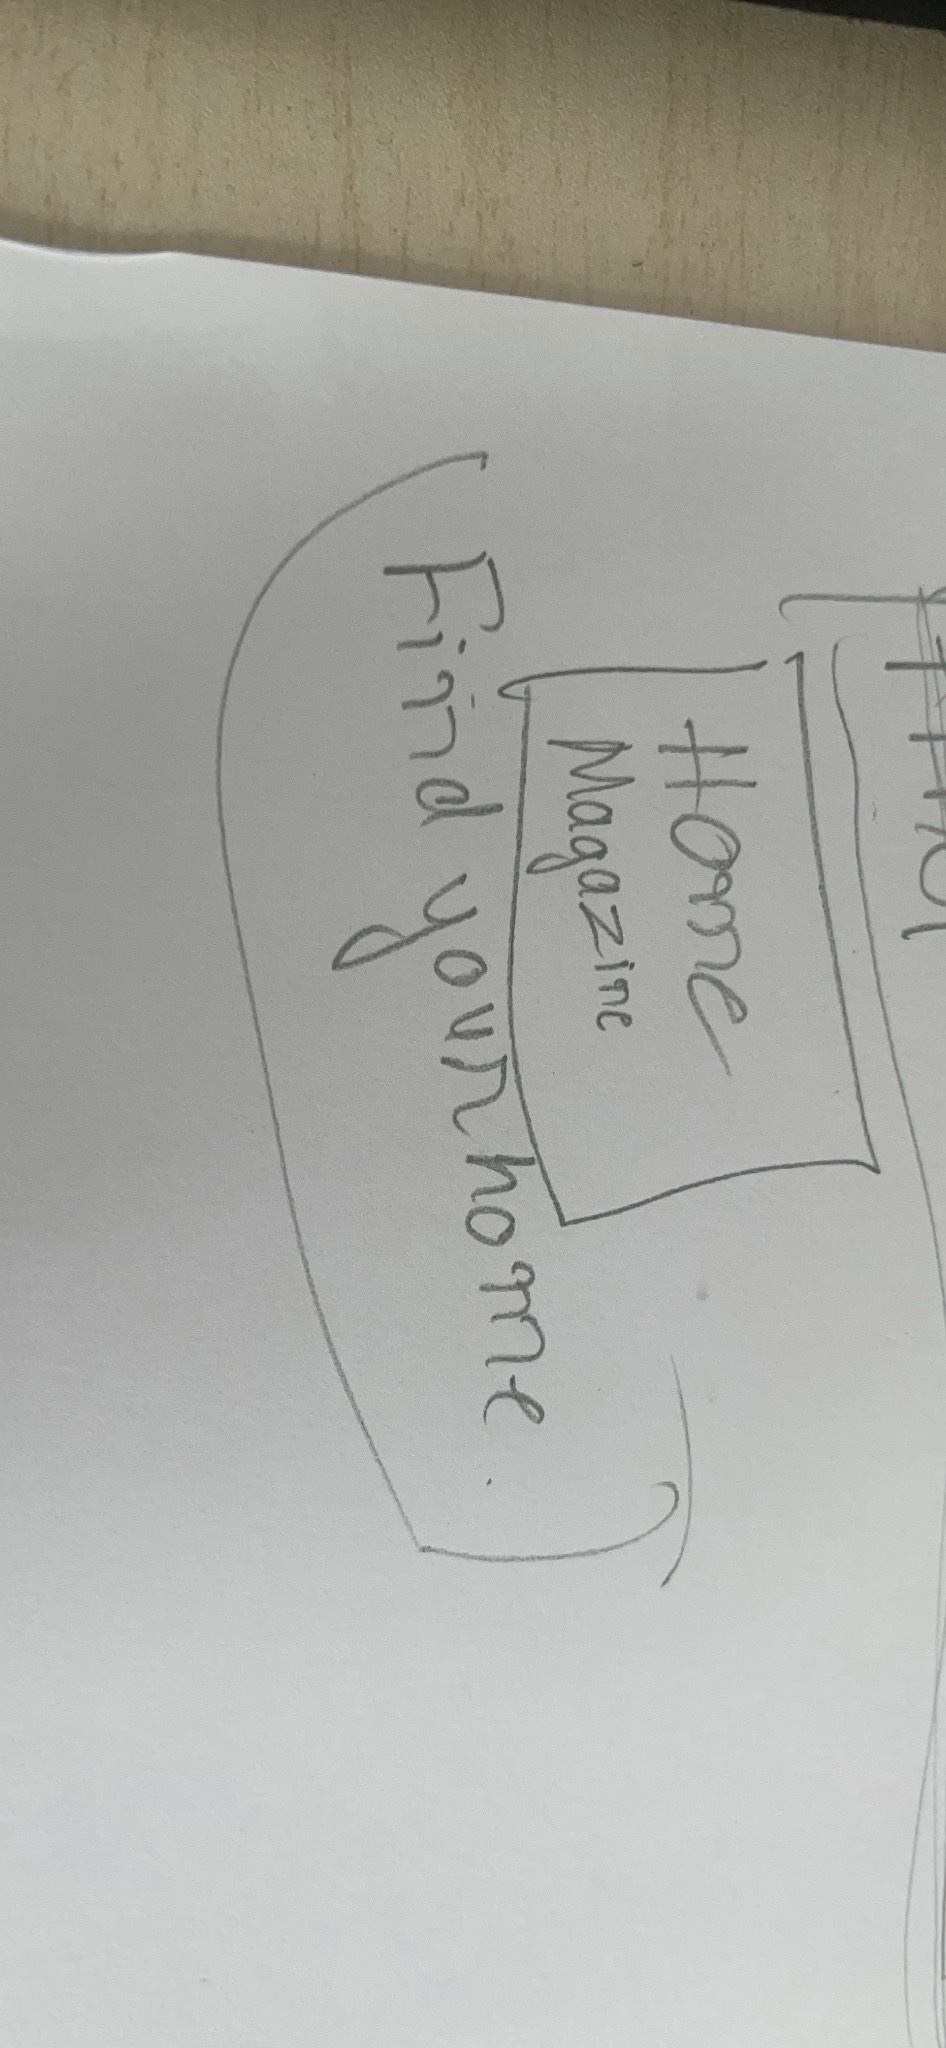 Home
Magazine
Find your home.